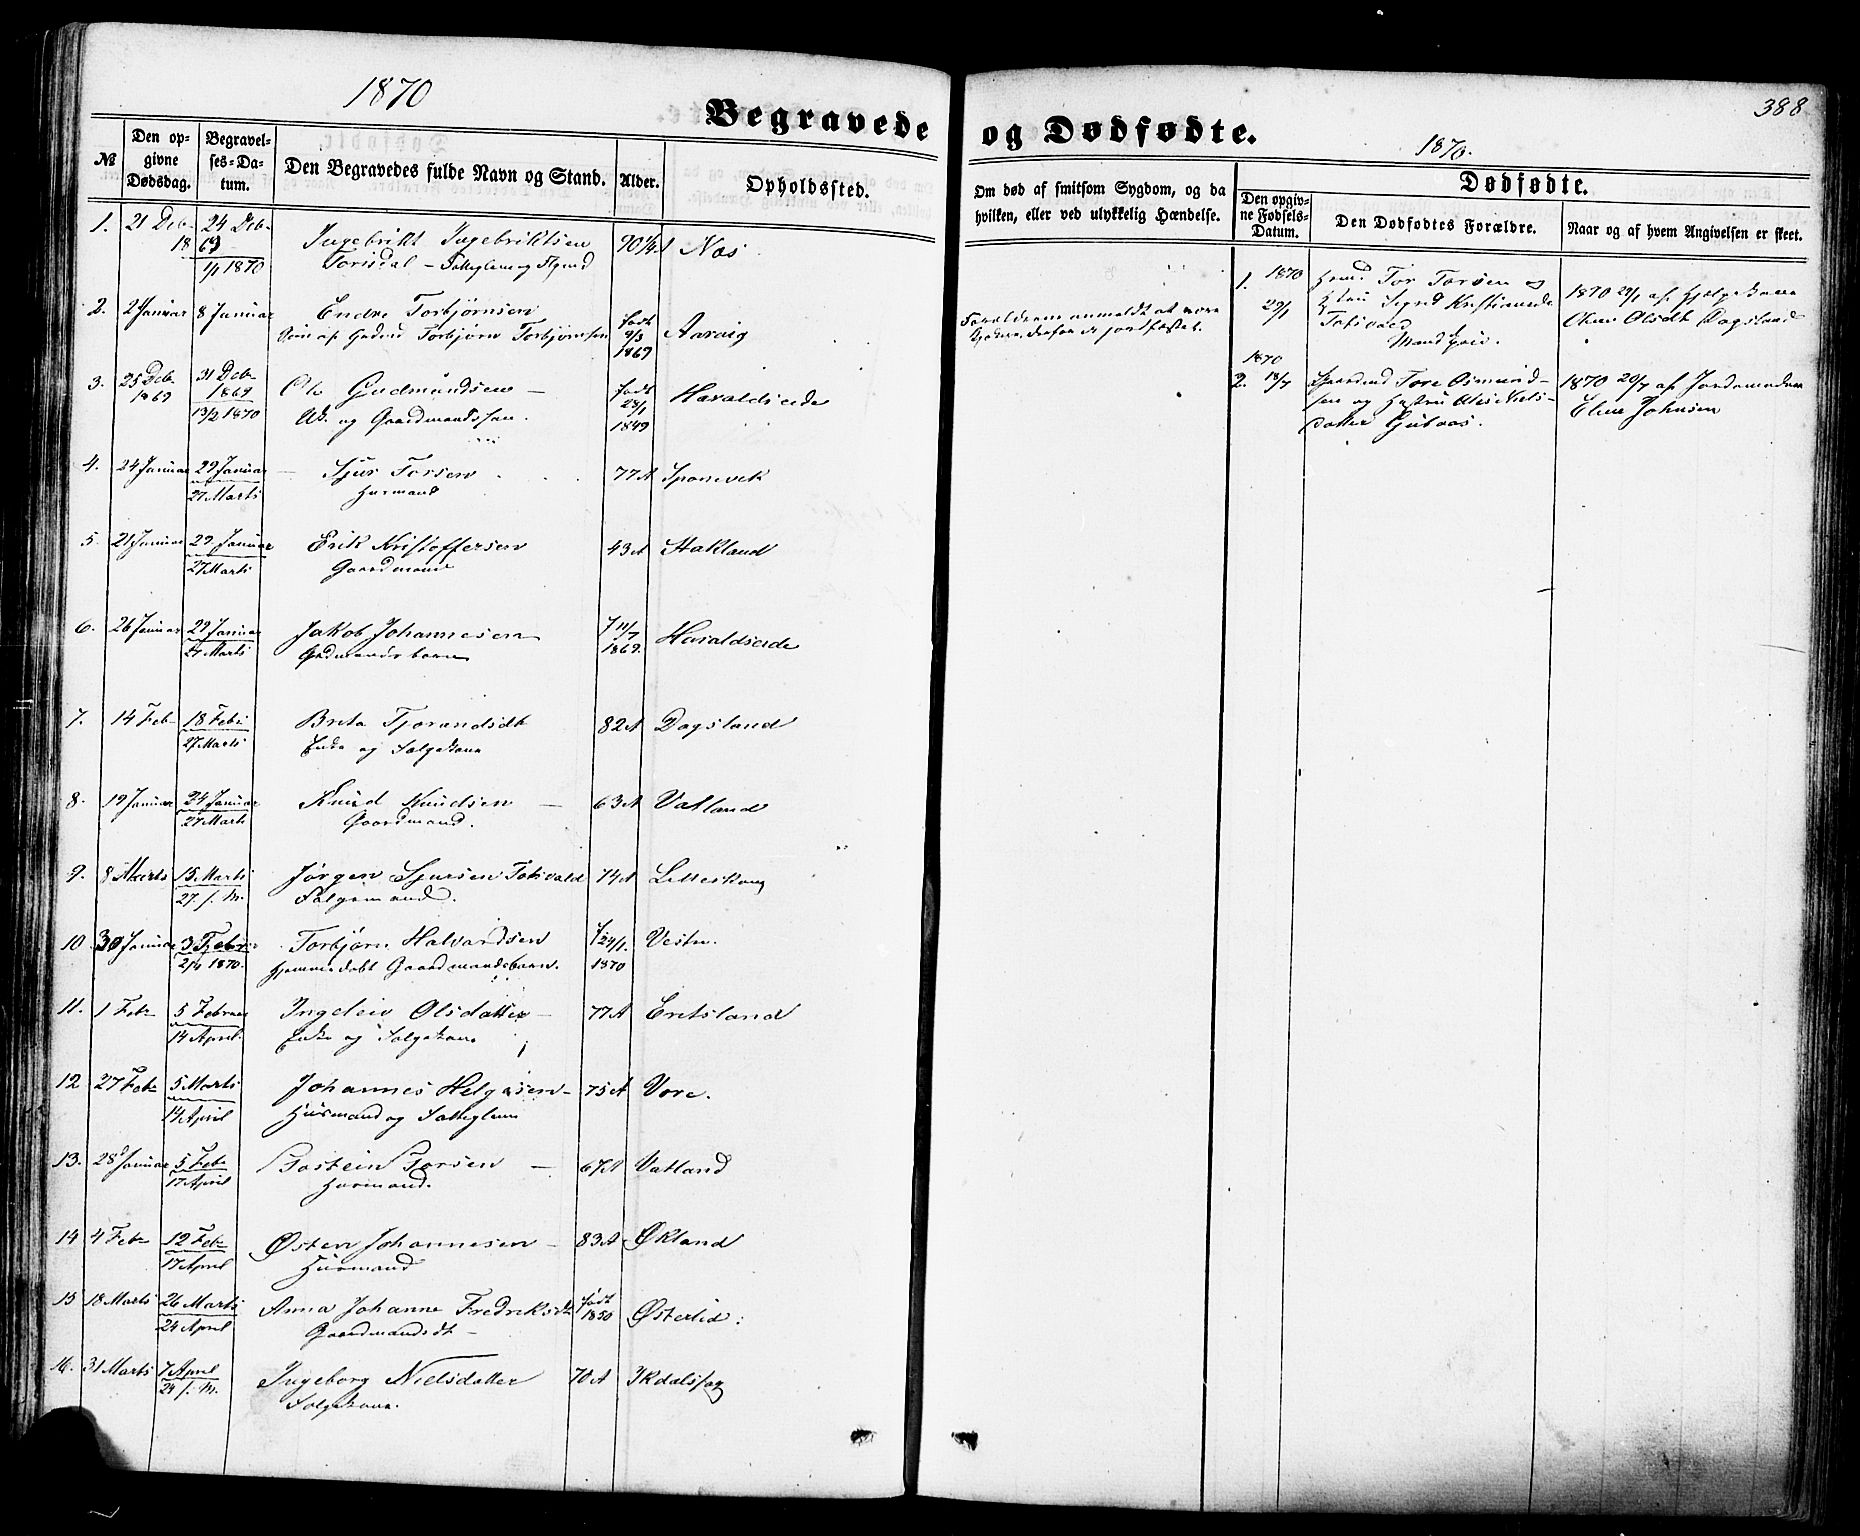 1870
Begravede og Dødfødte.
388
1870.
№
Den opgivne Dødsdag.
Begravelses-Datum.
Den Begravedes fulde Navn og Stand.
Alder.
Opholdssted.
Om død af smitsom Sygdom, og da hvilken, eller ved ulykkelig Hændelse.
Dødfødte.
Den opgivne Fødsels-Datum.
Den Dødfødtes Forældre.
Naar og af hvem Angivelsen er skeet.
1. 21 Deb 24 Deb Ingebrikt Ingebriktsen 90 1/4 A Næs
18 69 Torisdal
1/1 1870
2. 2 Januar 8 Januar Endre Torbjørnsen født Aarvig
Søn af Gdmd Torbjørn Torbjørnsen 9/3
1869
Forældrene anmeldt at være
3. 25 Deb 31 Deb Ole Gudmundsen født Haraldseide
1869 1869 Uk. og Gaardmandssøn. 23/1
13/2 1870 1849
4. 24 Januar 29 Januar Sjur Torsen 77 A Sponevik
27 Marts Husmand
5. 21 Januar 29 Januar Erik Kristoffersen 43 A Stakland
27 Marts Gaardmand
6. 26 Januar 29 Januar Jakob Johannesen f 11/7 Haraldseide
27 Marts Grdmandsbarn 1869.
7. 14 Feb 18 Febr Brita Tjorandsdt 82 A Dagsland
27 Marts Enke og Folgekone
8. 19 Januar 24 Januar Knud Knudsen 63 A Vatland
27 Marts Gaardmand.
9. 8 Marts 15 Marts Jørgen Sjursen Totsvold 74 A Litleskog
27 s. M. Folgemand.
10. 30 Januar 3 Febr Torbjørn Halvardsen f 24/1 Vestre.
2/4 1870. Hjemmedøbt Gaardmandsbarn. 1870
11. 1 Feb 5 Februar Ingeleiv Olsdatter 77 A Eritsland
14 April. Enke og Folgekone
12 27 Feb 5 Marts Johannes Helgesen 75 A Vore.
14 April Husmand og Fattiglem
13. 28 Januar 5 Feb Tostein Torsen 67 A Vatland
17 April Husmand.
14 4 Feb 12 Feb Østen Johannesen 83 A Økland
17 April Husmand
15 18 Marts 26 Marts Anna Johanne Fredriksdt født Østerlid
24 April Gaardmandsdt 1850
16. 31 Marts 7 April Ingeborg Nielsdatter 70 A
24 s. M. Folgekone.
1. 1870 Tor Torsen og 1870 29/1 af Hjælpekone
29/1 Hstru Sigrid Olsdt Dagsland
1870
2. 18/7 Gaardmd Tore Osmund- 1870 29/7 af Jordemoder
sen og Hustru Niels- Eline Johnsen
datter